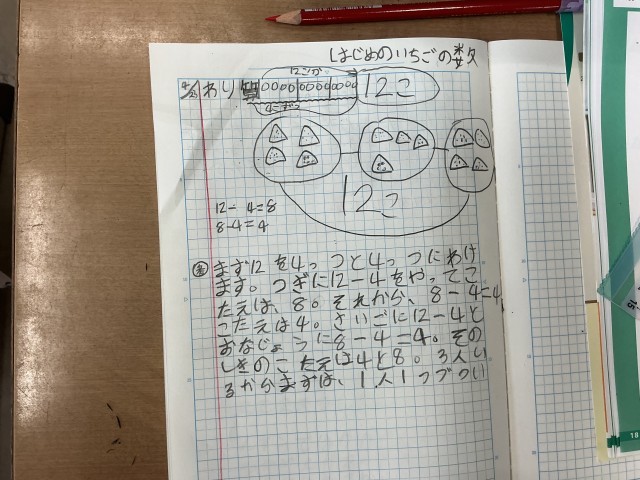 はじめのいちごの数
わり算
12こが
12こ
4こずつ
12こ
12-4=8
8-4=4
まず12を4っつと4っつにわけ
ます。つぎに12-4をやってこ
たえは、8。それから、8-4=4
こたえは4。さいごに12-4と
おなじように8-4=4。その
しきのこたえは4と8。3人い
るからまずは、1人1つづつい
18